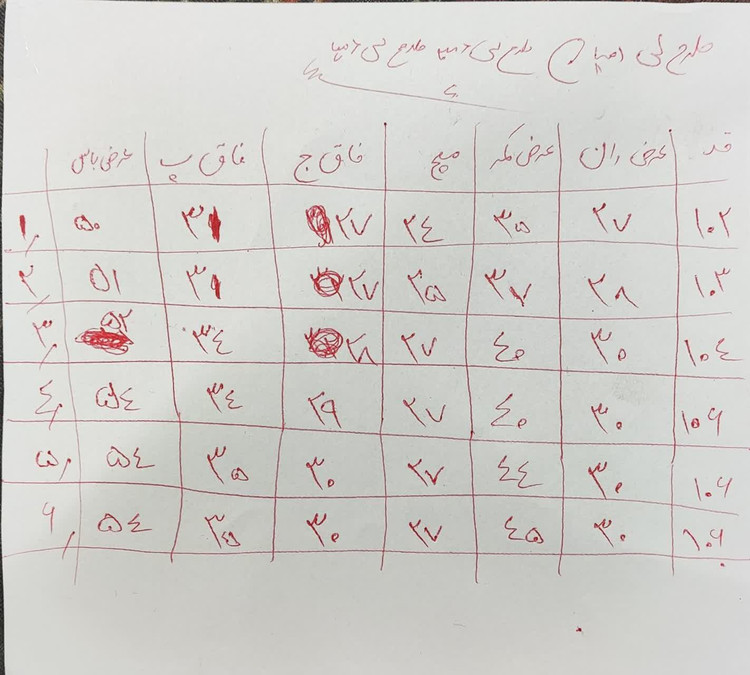 طرح لی طرح لی طرح لی
قد عرض ران عرض کمر مچ فاق ج فاق پ عرض باسن
۱۰۲ ۲۷ ۳۵ ۲٤ ۲۷ ۳۱ ۵۰ ۱
۱۰۳ ۲۸ ۳۷ ۲۵ ۲۷ ۳۱ ۵۱ ۲
۱۰٤ ۳۰ ٤۰ ۲۷ ۲۸ ۳٤ ۵۲ ۳
۱۰۶ ۳۰ ٤۰ ۲۷ ۲۹ ۳٤ ۵٤ ٤
۱۰۶ ۳۰ ٤٤ ۲۷ ۳۰ ۳۵ ۵٤ ۵
۱۰۶ ۳۰ ٤۵ ۲۷ ۳۰ ۳۵ ۵٤ ۶